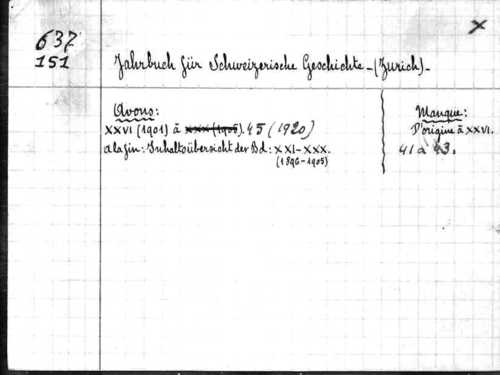 637
151
x
Jahrbuch für Schweizerische Geschichte - (Zurich) -
Avons:
XXVI (1901) à XXX (1905). 45 (1920)
a la fin: Inhaltsübersicht der Bd: XXI-XXX.
(1896-1905)
Manque:
D'origine à XXVI.
41 à 43.